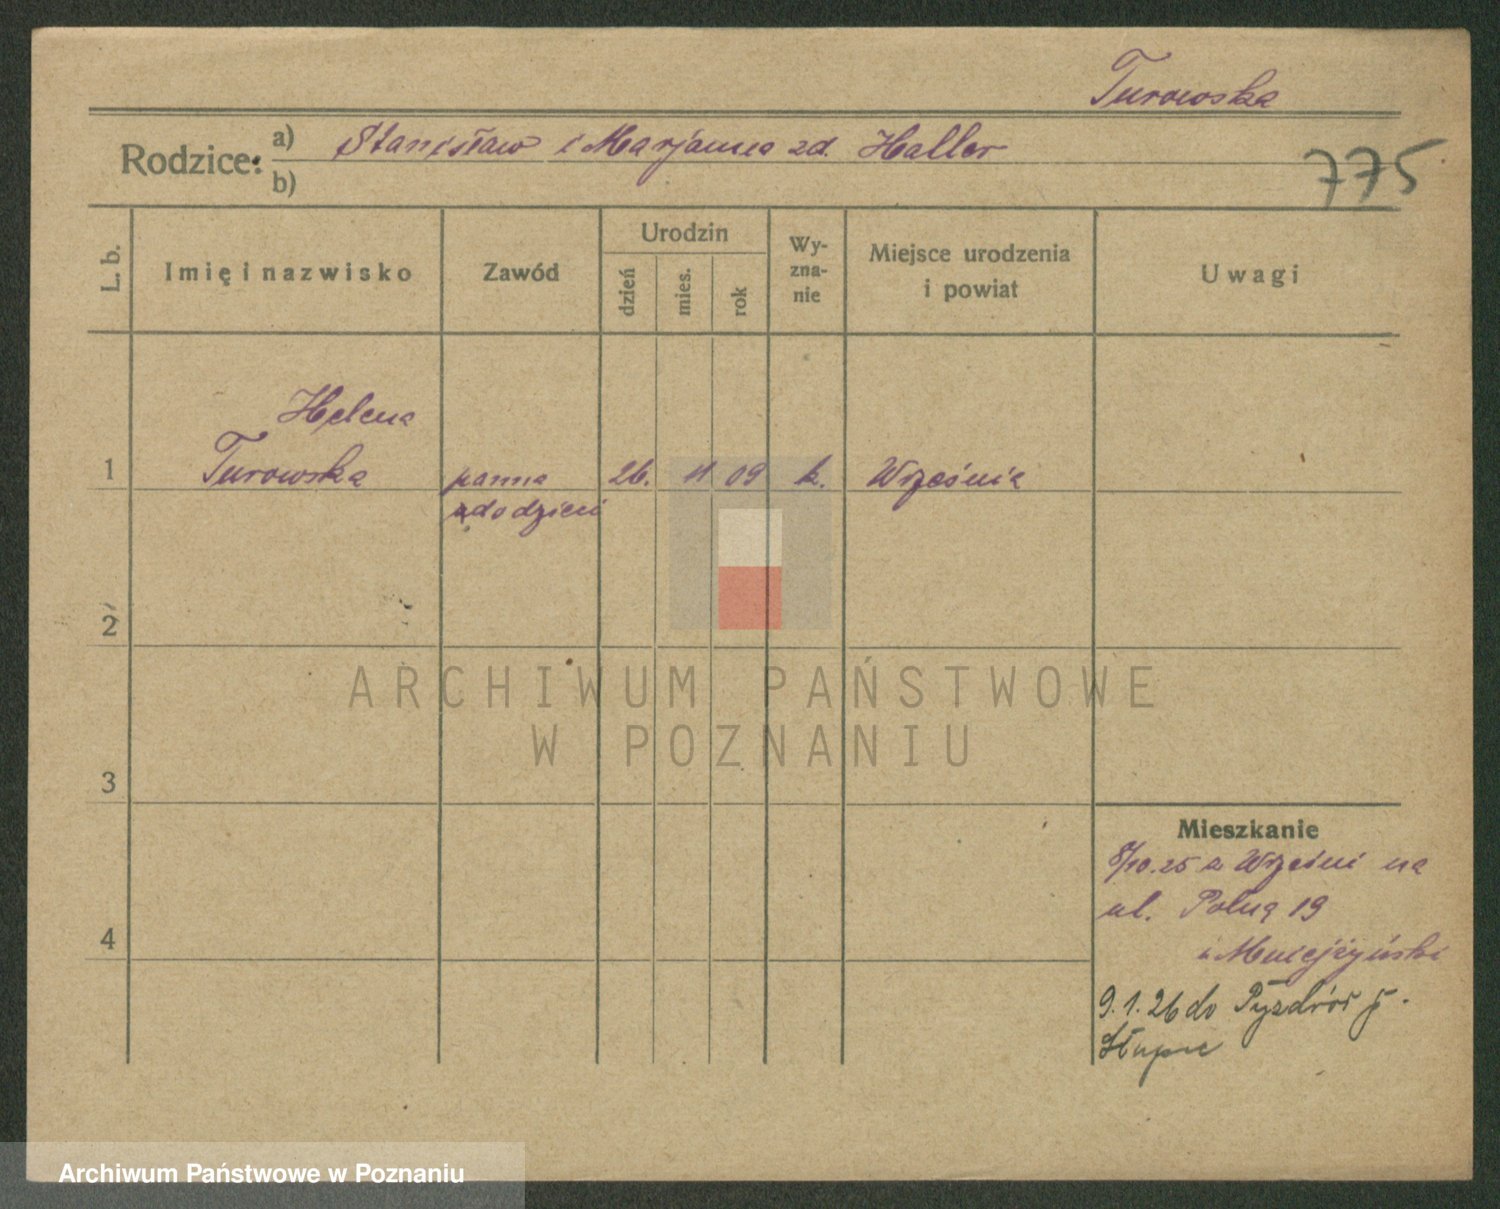 Turowska
Rodzice:
a) Stanisław i Marjanna zd. Haller
b)
775
L. b.
Imię i nazwisko
Zawód
Urodzin
dzień
mies.
rok
Wy-
zna-
nie
Miejsce urodzenia
i powiat
Uwagi
Helena
1 Turowska panna 26. 11 09 k. Września
do dzieci
2
3
4
ARCHIWUM PAŃSTWOWE
W POZNANIU
Mieszkanie
8/10.25 z Wrześni na
ul. Polną 19
9.1.26 do Pyzdrów
Archiwum Państwowe w Poznaniu